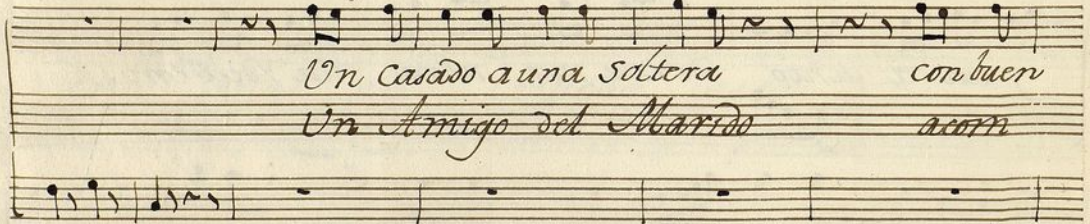 Un casado a una Soltera con buen
Un Amigo del Marido acom